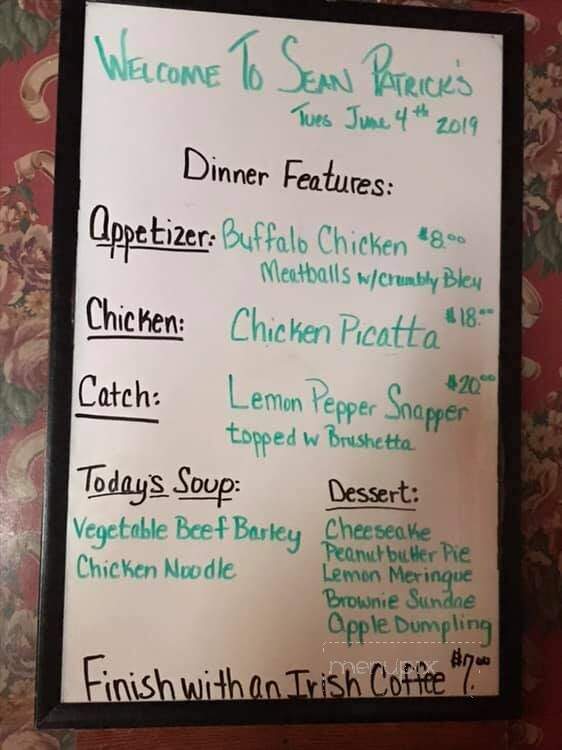 WELCOME TO SEAN PATRICK'S
Tues June 4th 2019
Dinner Features:
Appetizer: Buffalo Chicken $8.00
Meatballs w/crumbly Bleu
Chicken: Chicken Picatta $18.00
Catch: Lemon Pepper Snapper $20.00
topped w Brushetta
Today's Soup:
Vegetable Beef Barley
Chicken Noodle
Dessert:
Cheeseake
Peanutbutter Pie
Lemon Meringue
Brownie Sundae
Apple Dumpling
menupix
Finish with an Irish Coffee $7.00